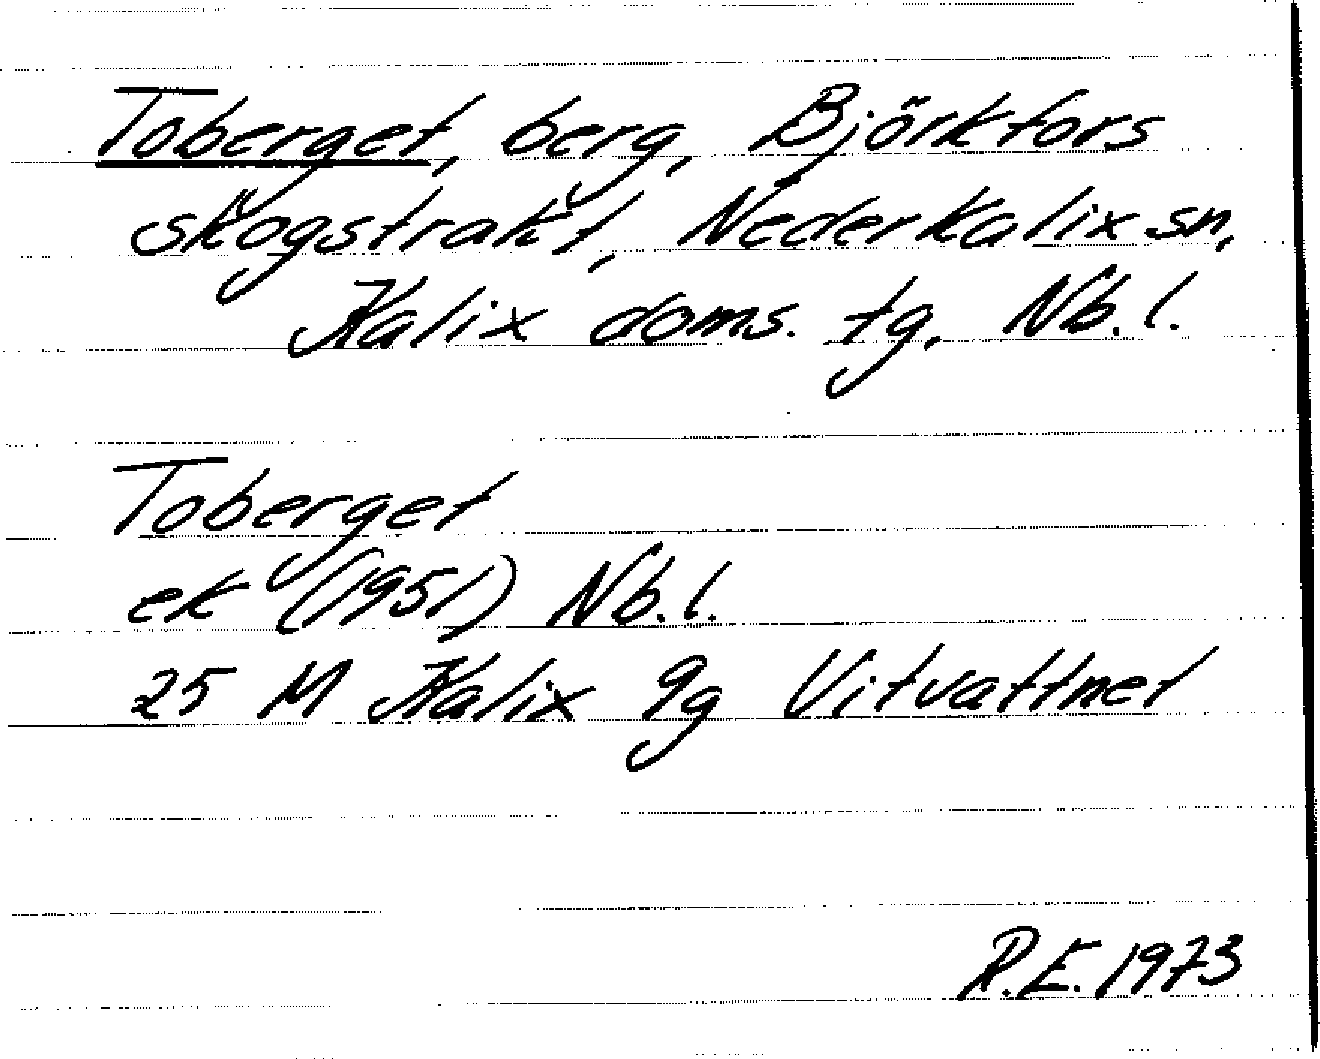 Toberget, berg, Björkfors
skogstrakt, Nederkalix sn,
Kalix doms. tg, Nb. l.
Toberget
ek (1951) Nb. l.
25 M Kalix 9g Vitvattnet
R.E. 1973